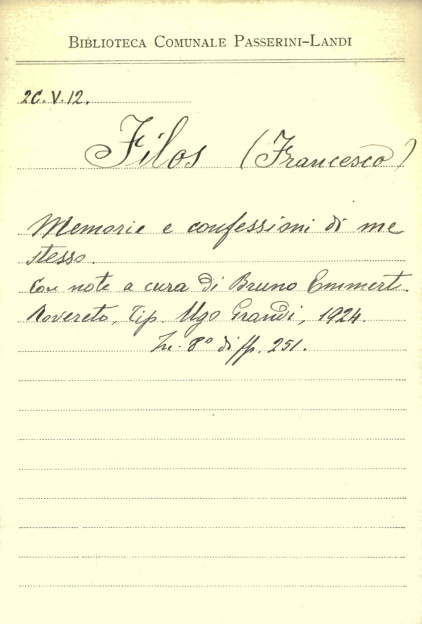 BIBLIOTECA COMUNALE PASSERINI-LANDI
2C.V.12.
Filos (Francesco)
Memorie e confessioni di me
stesso.
Con note a cura di Bruno Emmert.
Rovereto, Tip. Ugo Grandi, 1924.
In-8º di pp. 251.